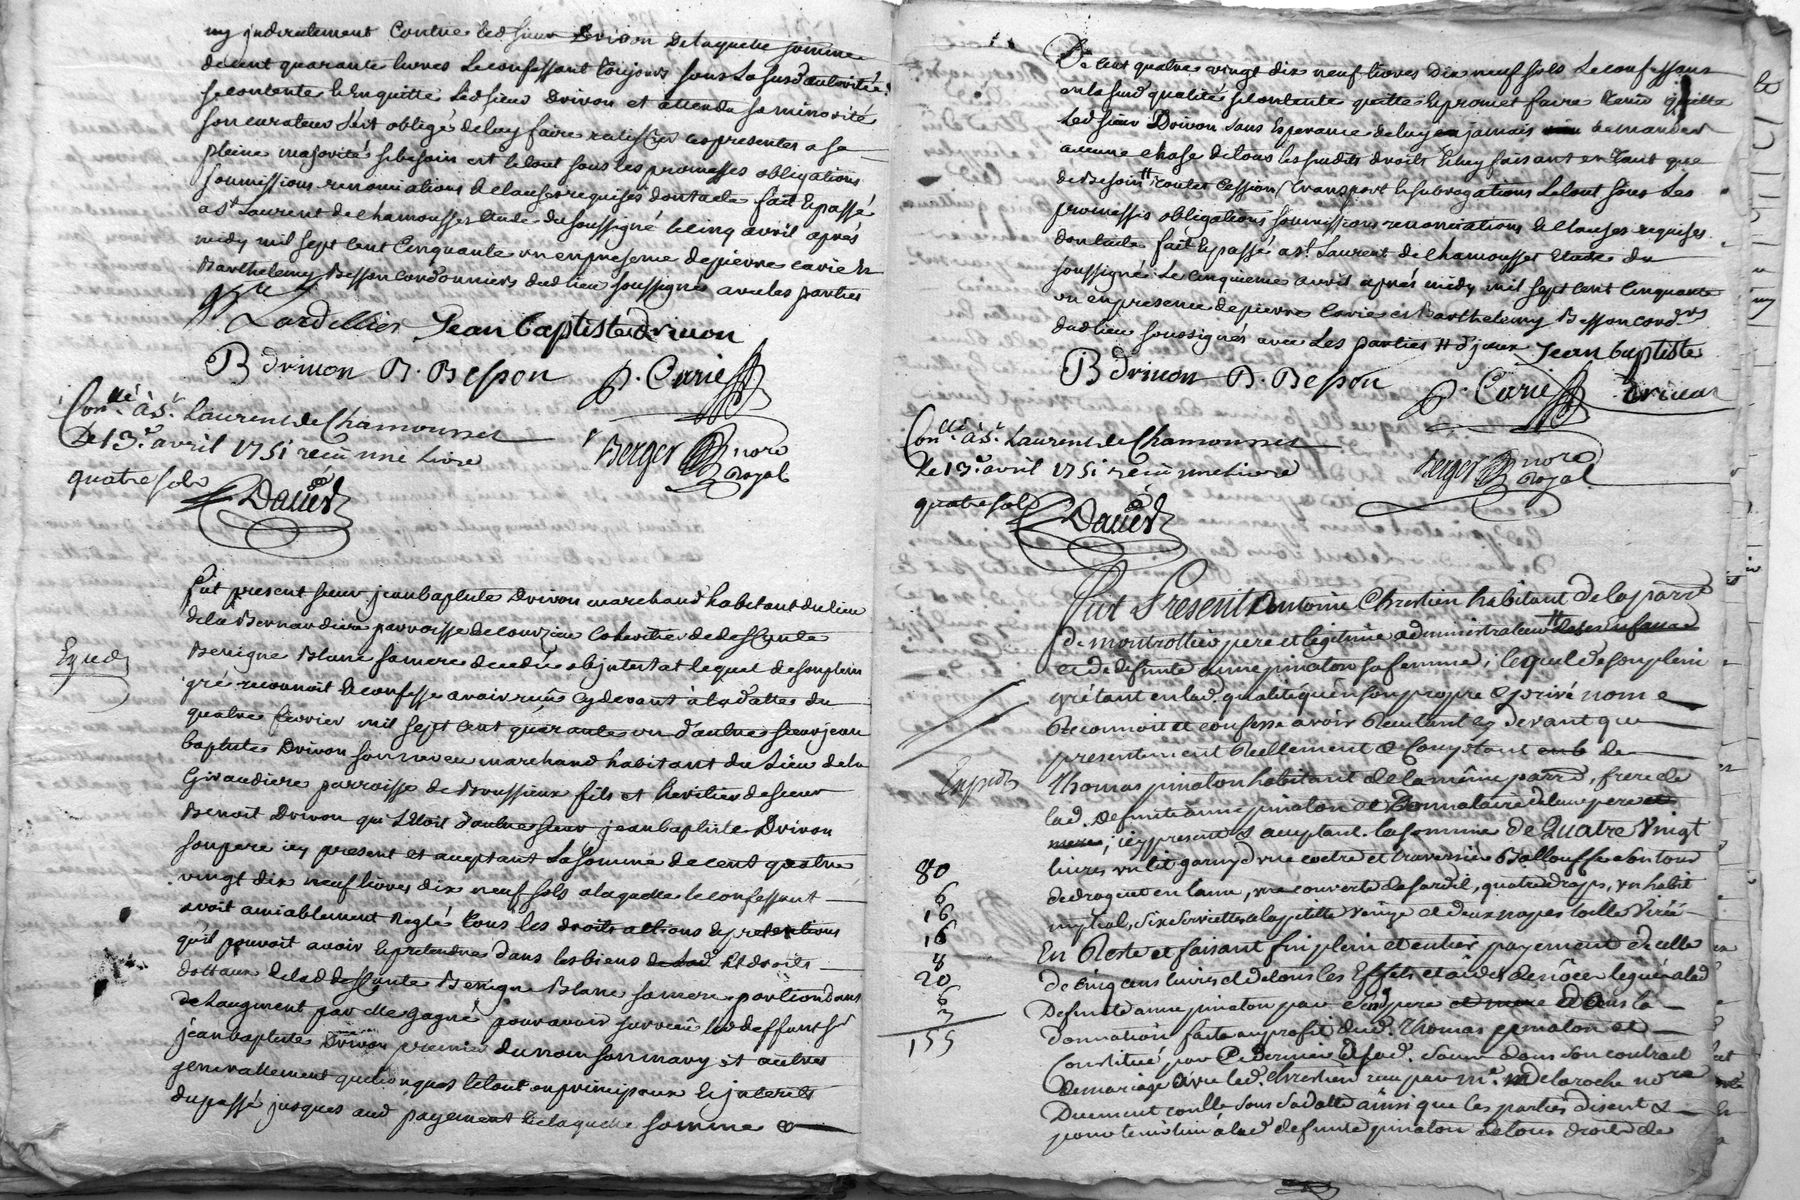 ny jndirectement Contre led sieur Drivon de laquelle somme
de cent quarante livres le confessant toujours sous la susd autorité
se contente & Enquitte led sieur Drivon et attendu sa minorité
son curateur s'est obligé de luy faire ratiffier ces presentes a sa
pleine majorité si besoin est le tout sous les promesses obligations
soumissions renonciations & clauses requises dont acte fait & passé
a St Laurent de chamousset Etude du soussigné le cinq avril après
midy mil sept cent Cinquante un en presence de pierre carie &
Barthelemy Besson cordonniers dud lieu soussignes avec les parties
Lardellier Jean baptiste drivon
B drivon B. Besson P. Carie
Conllé à St Laurent de Chamousset
Le 13e avril 1751 reçu une Livre
quatre sols
Berger nore Royal
Daved
Fut present sieur jean baptiste Drivon marchand habitant du lieu
de la Bernardiere parroisse de courzieu coheritier de deffunte
Expedi
Benigne Blanc sa mere decedée abjntestat lequel de son plein
gré reconnoit & confesse avoir reçu cy devant à la datte du
quatre fevrier mil sept cent quarante un d'autre sieur jean
baptiste Drivon son neveu marchand habitant du Lieu de la
Giraudiere parroisse de Broussieux fils et heritier de sieur
Benoit Drivon qui l'etoit d'autre sieur jean baptiste Drivon
son pere icy present et acceptant la somme de cent quatre
vingt dix neuf livres dix neuf sols a laquelle le confessant
avoit amiablement reglé tous les droits actions & pretentions
qu'il pouvoit avoir & pretendre dans les biens de lad Et droits
dottaux de lad deffunte Benigne Blanc sa mere portion dans
de Laugment par elle gagné pour avoir survecu led deffunt sr
jean baptiste Drivon premier du nom son mary et autres
generallement quelconques le tout en principaux & jnterets
du passé jusques aud payement de laquelle somme
De cent quatre vingt dix neuf livres dix neuf sols le confessant
en la susd qualité se contente quitte & promet faire tenir quitte
led sieur Drivon sans Esperance de luy en jamais rien demander
aucune chose de tous les susdits droits & luy faisant en tant que
de Besoin toutes Cession Transport & subrogations Le tout sous Les
promesses obligations soumissions renonciations & clauses requises
dont acte fait & passé a St Laurent de chamousset Etude du
soussigné Le cinquieme avril après midy mil sept cent Cinquante
un en presence de pierre Carie et Barthelemy Besson cordrs
dud lieu soussignés avec Les parties Jean baptiste
B drivon B. Besson P. Carie drivon
Conllé à St Laurent de Chamousset
Le 13e avril 1751 reçu une Livre
quatre sols
Berger nore Royal
Daved
Fut Present Antoine Chrestien habitant de la parre
de montrottier pere et legitime administrateur de ses enfans
et de defunte anne pinaton sa femme, lequel de son plein
gré tant en lad. qualité qu'en son propre & privé nom
Reconnoit et confesse avoir Reçu tant cy devant que
presentement Reellement & Comptant de
Expedi
Thomas pinaton habitant de la même parre, frere de
lad. defunte anne pinaton et Donnataire de leur pere et
mere, icy present & acceptant. la somme de Quatre Vingt
livres un lit garny d'une coetre et traversier Ballouffe
une couverte de sardil, quatre draps, un habit
nuptial, six serviettes et deux napes toille
En Reste et faisant fin plein et entier payement de celle
de cinq cens livres et de tous les Effets
Defunte anne pinaton par leurs pere et mere et dans la
donnation faite au profit dud. Thomas pinaton et
Constitué par
de mariage avec led. chrestien reçu par me. Delaroche nore
Duement conllé sous sa datte ainsi que les parties disent &
lad defunte pinaton de tous droits de
80
6
16
18
20
6
155